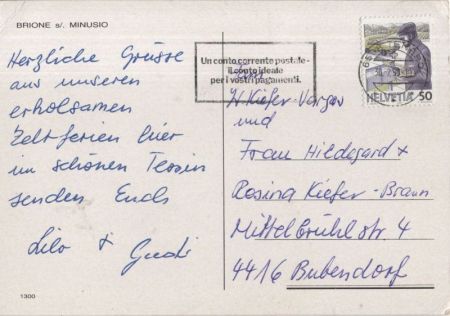 BRIONE s/. MINUSIO
Herzliche Grüsse
aus unseren
erholsamen
Zeltferien hier
im schönen Tessin
senden Euch
Lilo +
1300
Un conto corrente postale -
il conto ideale
per i vostri pagamenti.
HELVETIA 50
W. Kiefer-
und
Frau Hildegard +
Rosina Kiefer-Braun
Mittelbrühlstr. 4
4416 Bubendorf